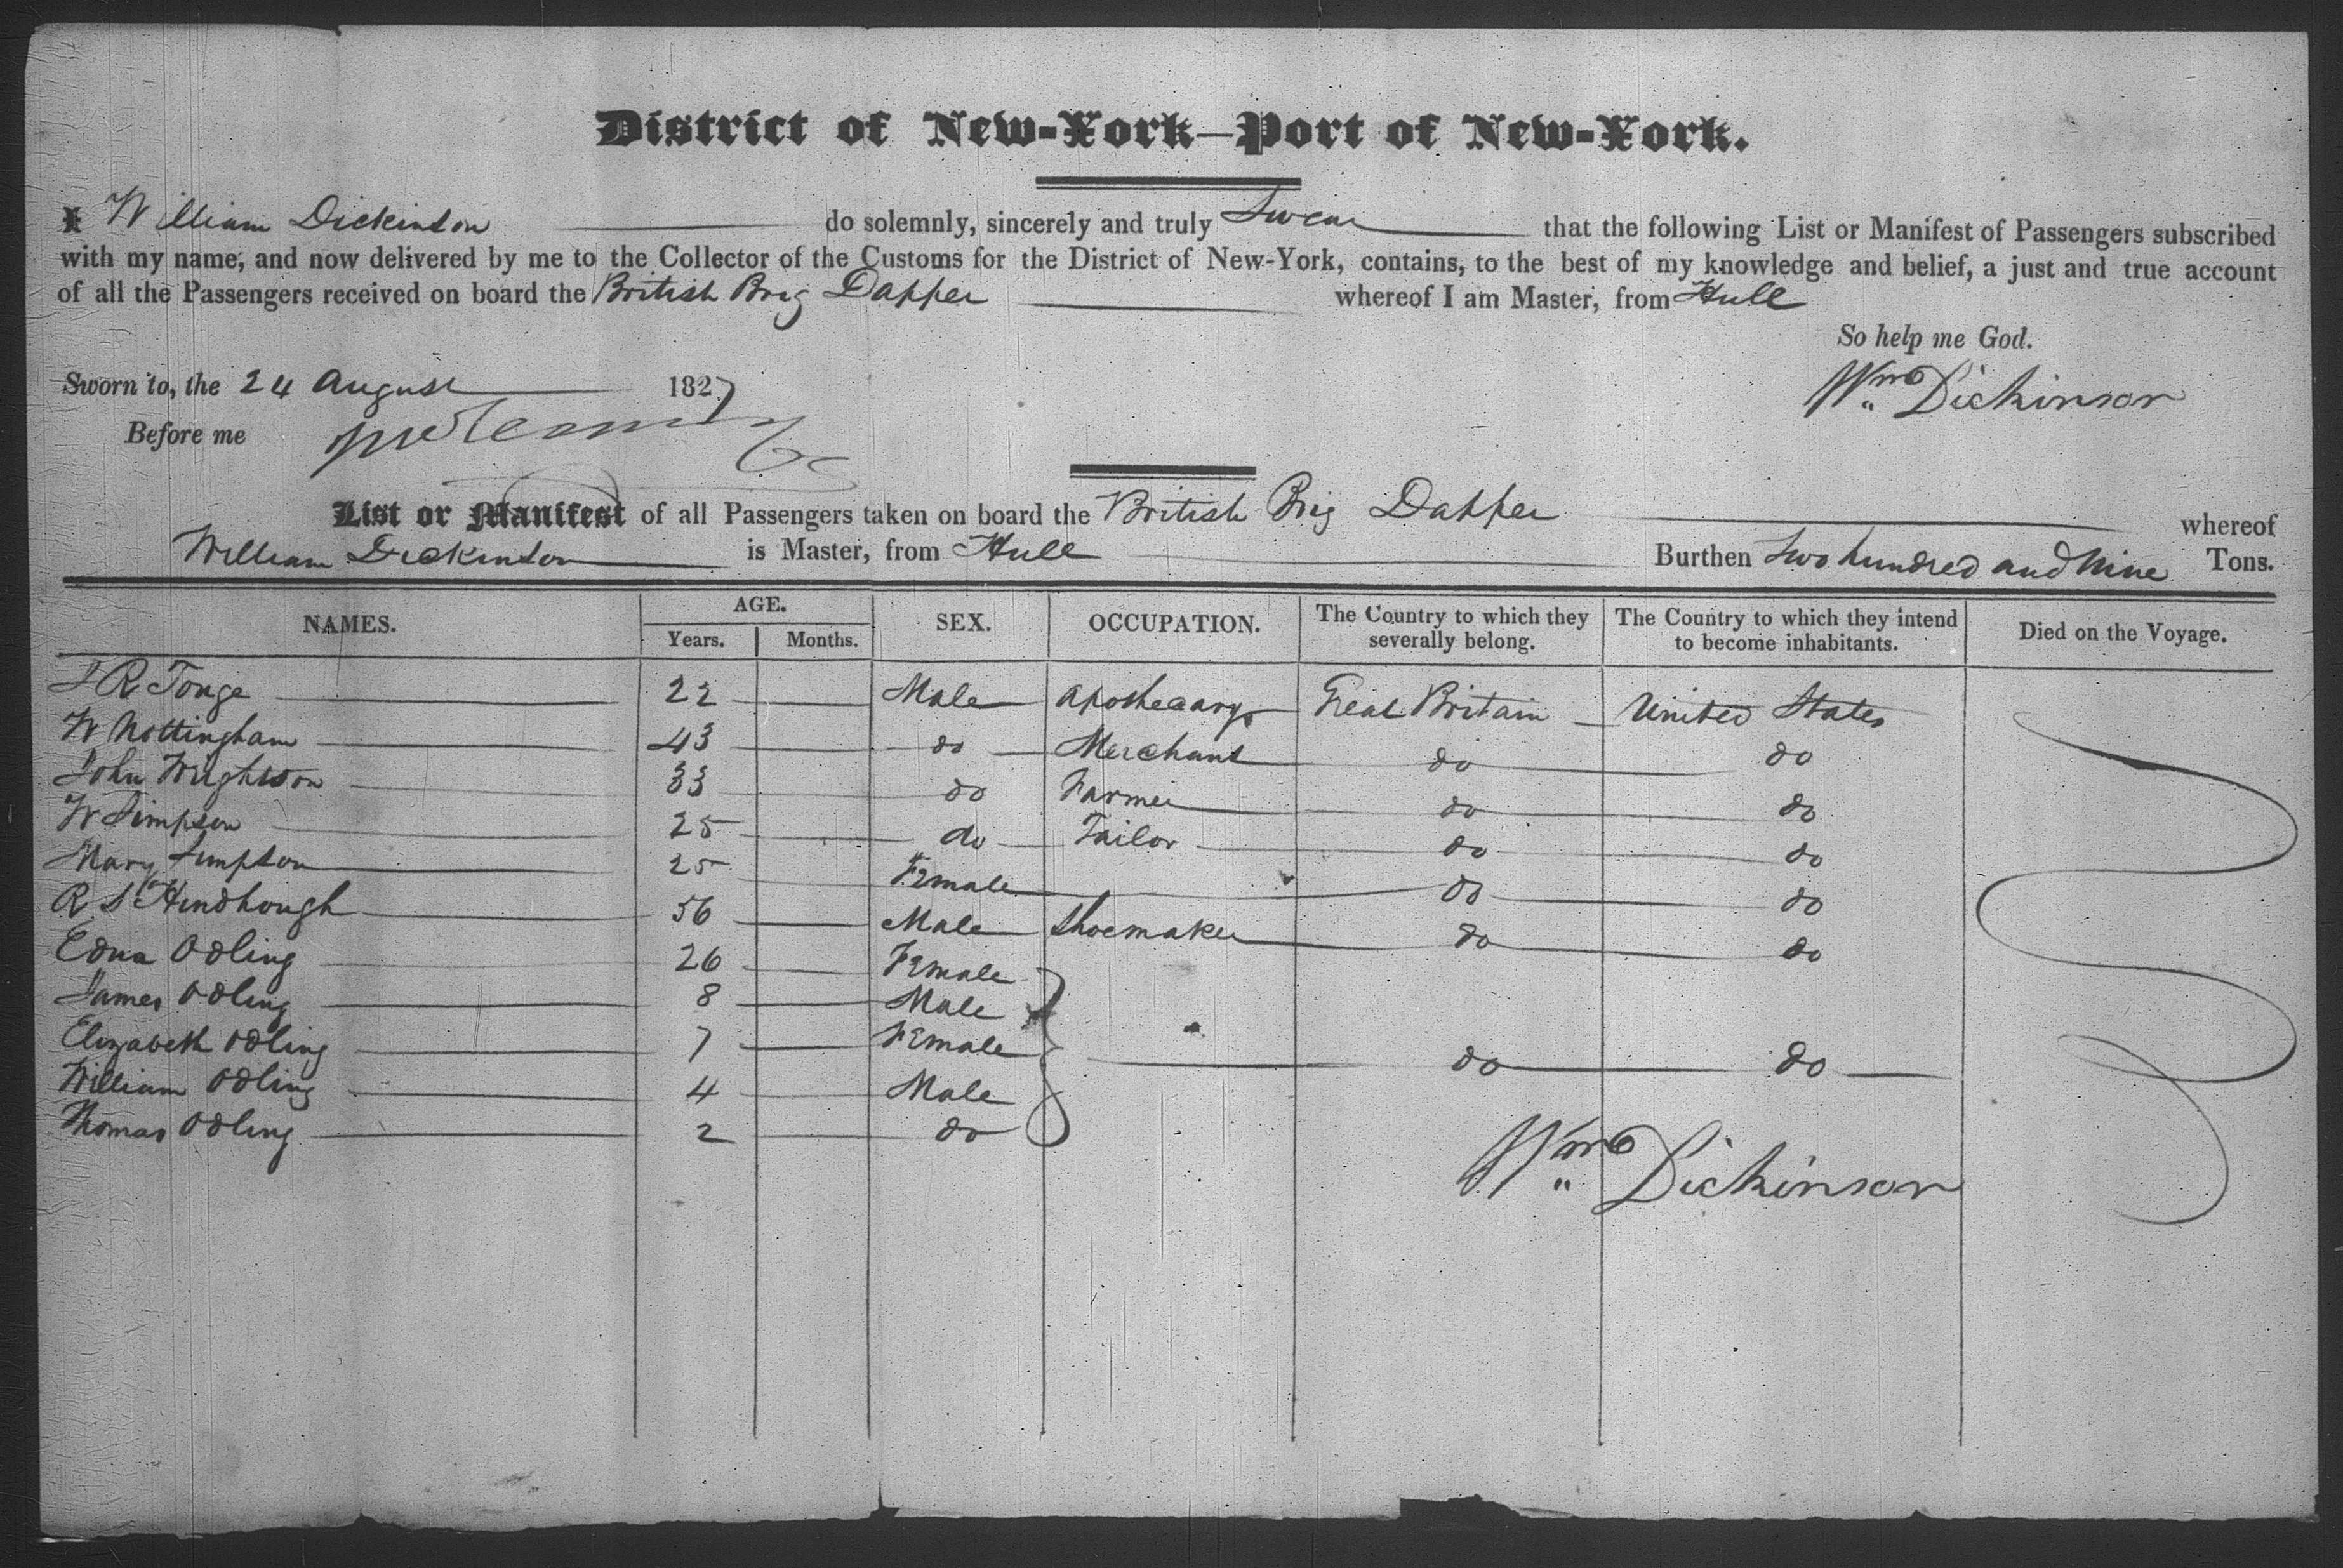 District of New-York—Port of New-York.
I William Dickinson do solemnly, sincerely and truly Swear that the following List or Manifest of Passengers subscribed
with my name, and now delivered by me to the Collector of the Customs for the District of New-York, contains, to the best of my knowledge and belief, a just and true account
of all the Passengers received on board the British Brig Dapper whereof I am Master, from Hull
So help me God.
Sworn to, the 24 August 1827 Wm Dickinson
Before me
List or Manifest of all Passengers taken on board the British Brig Dapper whereof
William Dickinson is Master, from Hull Burthen Two hundred and Nine Tons.
NAMES. AGE. Years. Months. SEX. OCCUPATION. The Country to which they severally belong. The Country to which they intend to become inhabitants. Died on the Voyage.
J R Tonge 22 Male Apothecary Great Britain United States
W Nottingham 43 do Merchant do do
John Wrightson 33 do Farmer do do
W Simpson 25 do Tailor do do
Mary Simpson 25 Female do do
R S Hindhough 56 Male Shoemaker do do
Edna Odling 26 Female
James Odling 8 Male
Elizabeth Odling 7 Female do do
William Odling 4 Male
Thomas Odling 2 do
Wm Dickinson